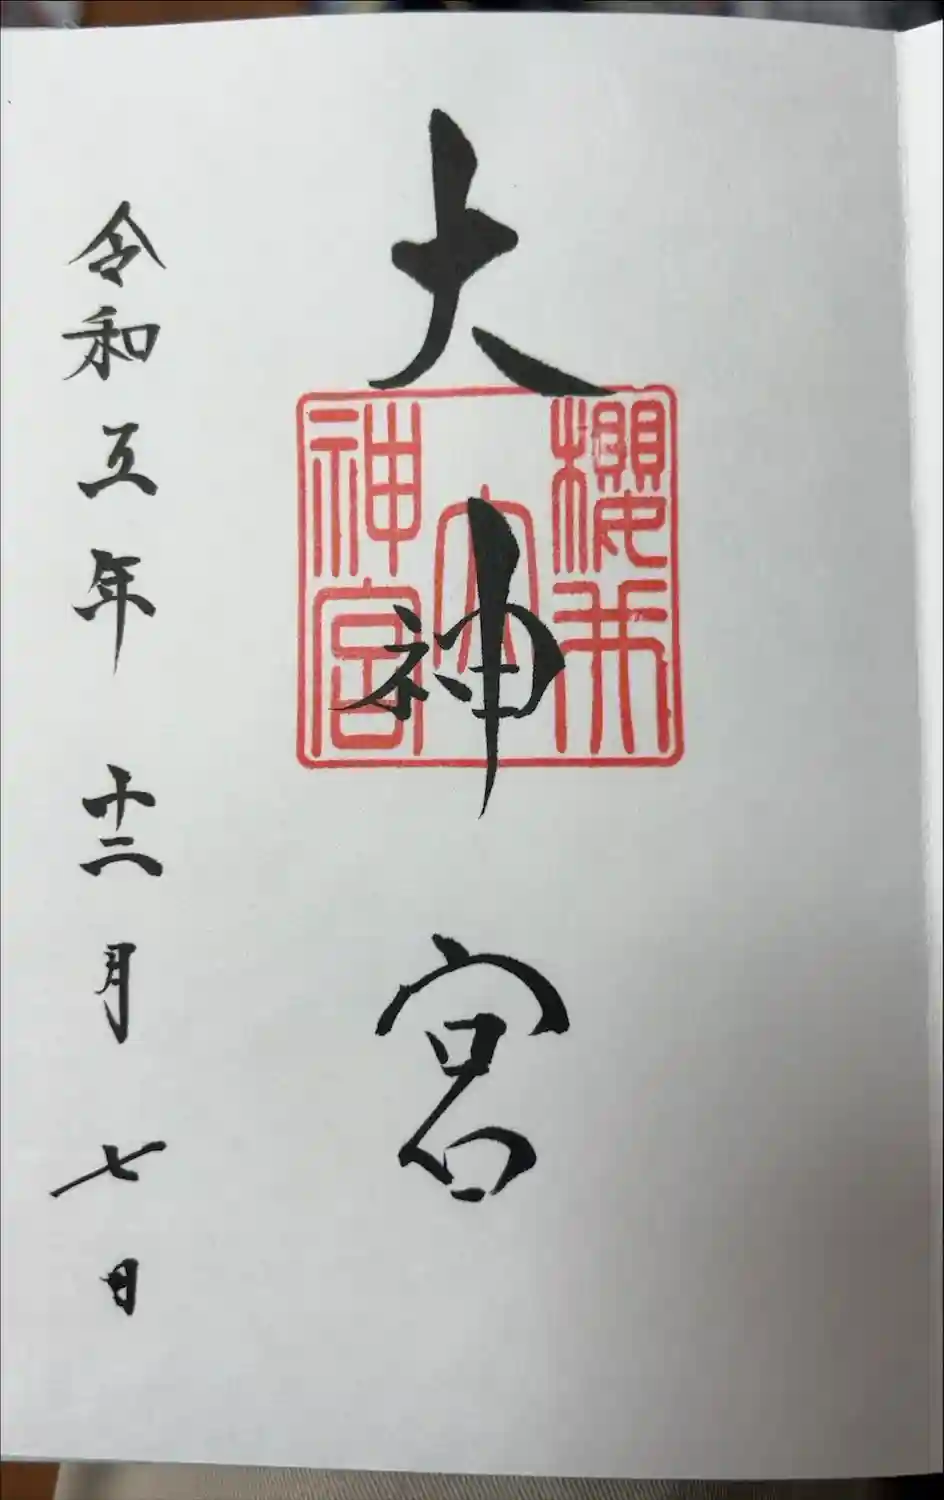 大神宮
櫻井
大
神宮
令和五年 十二月 七日